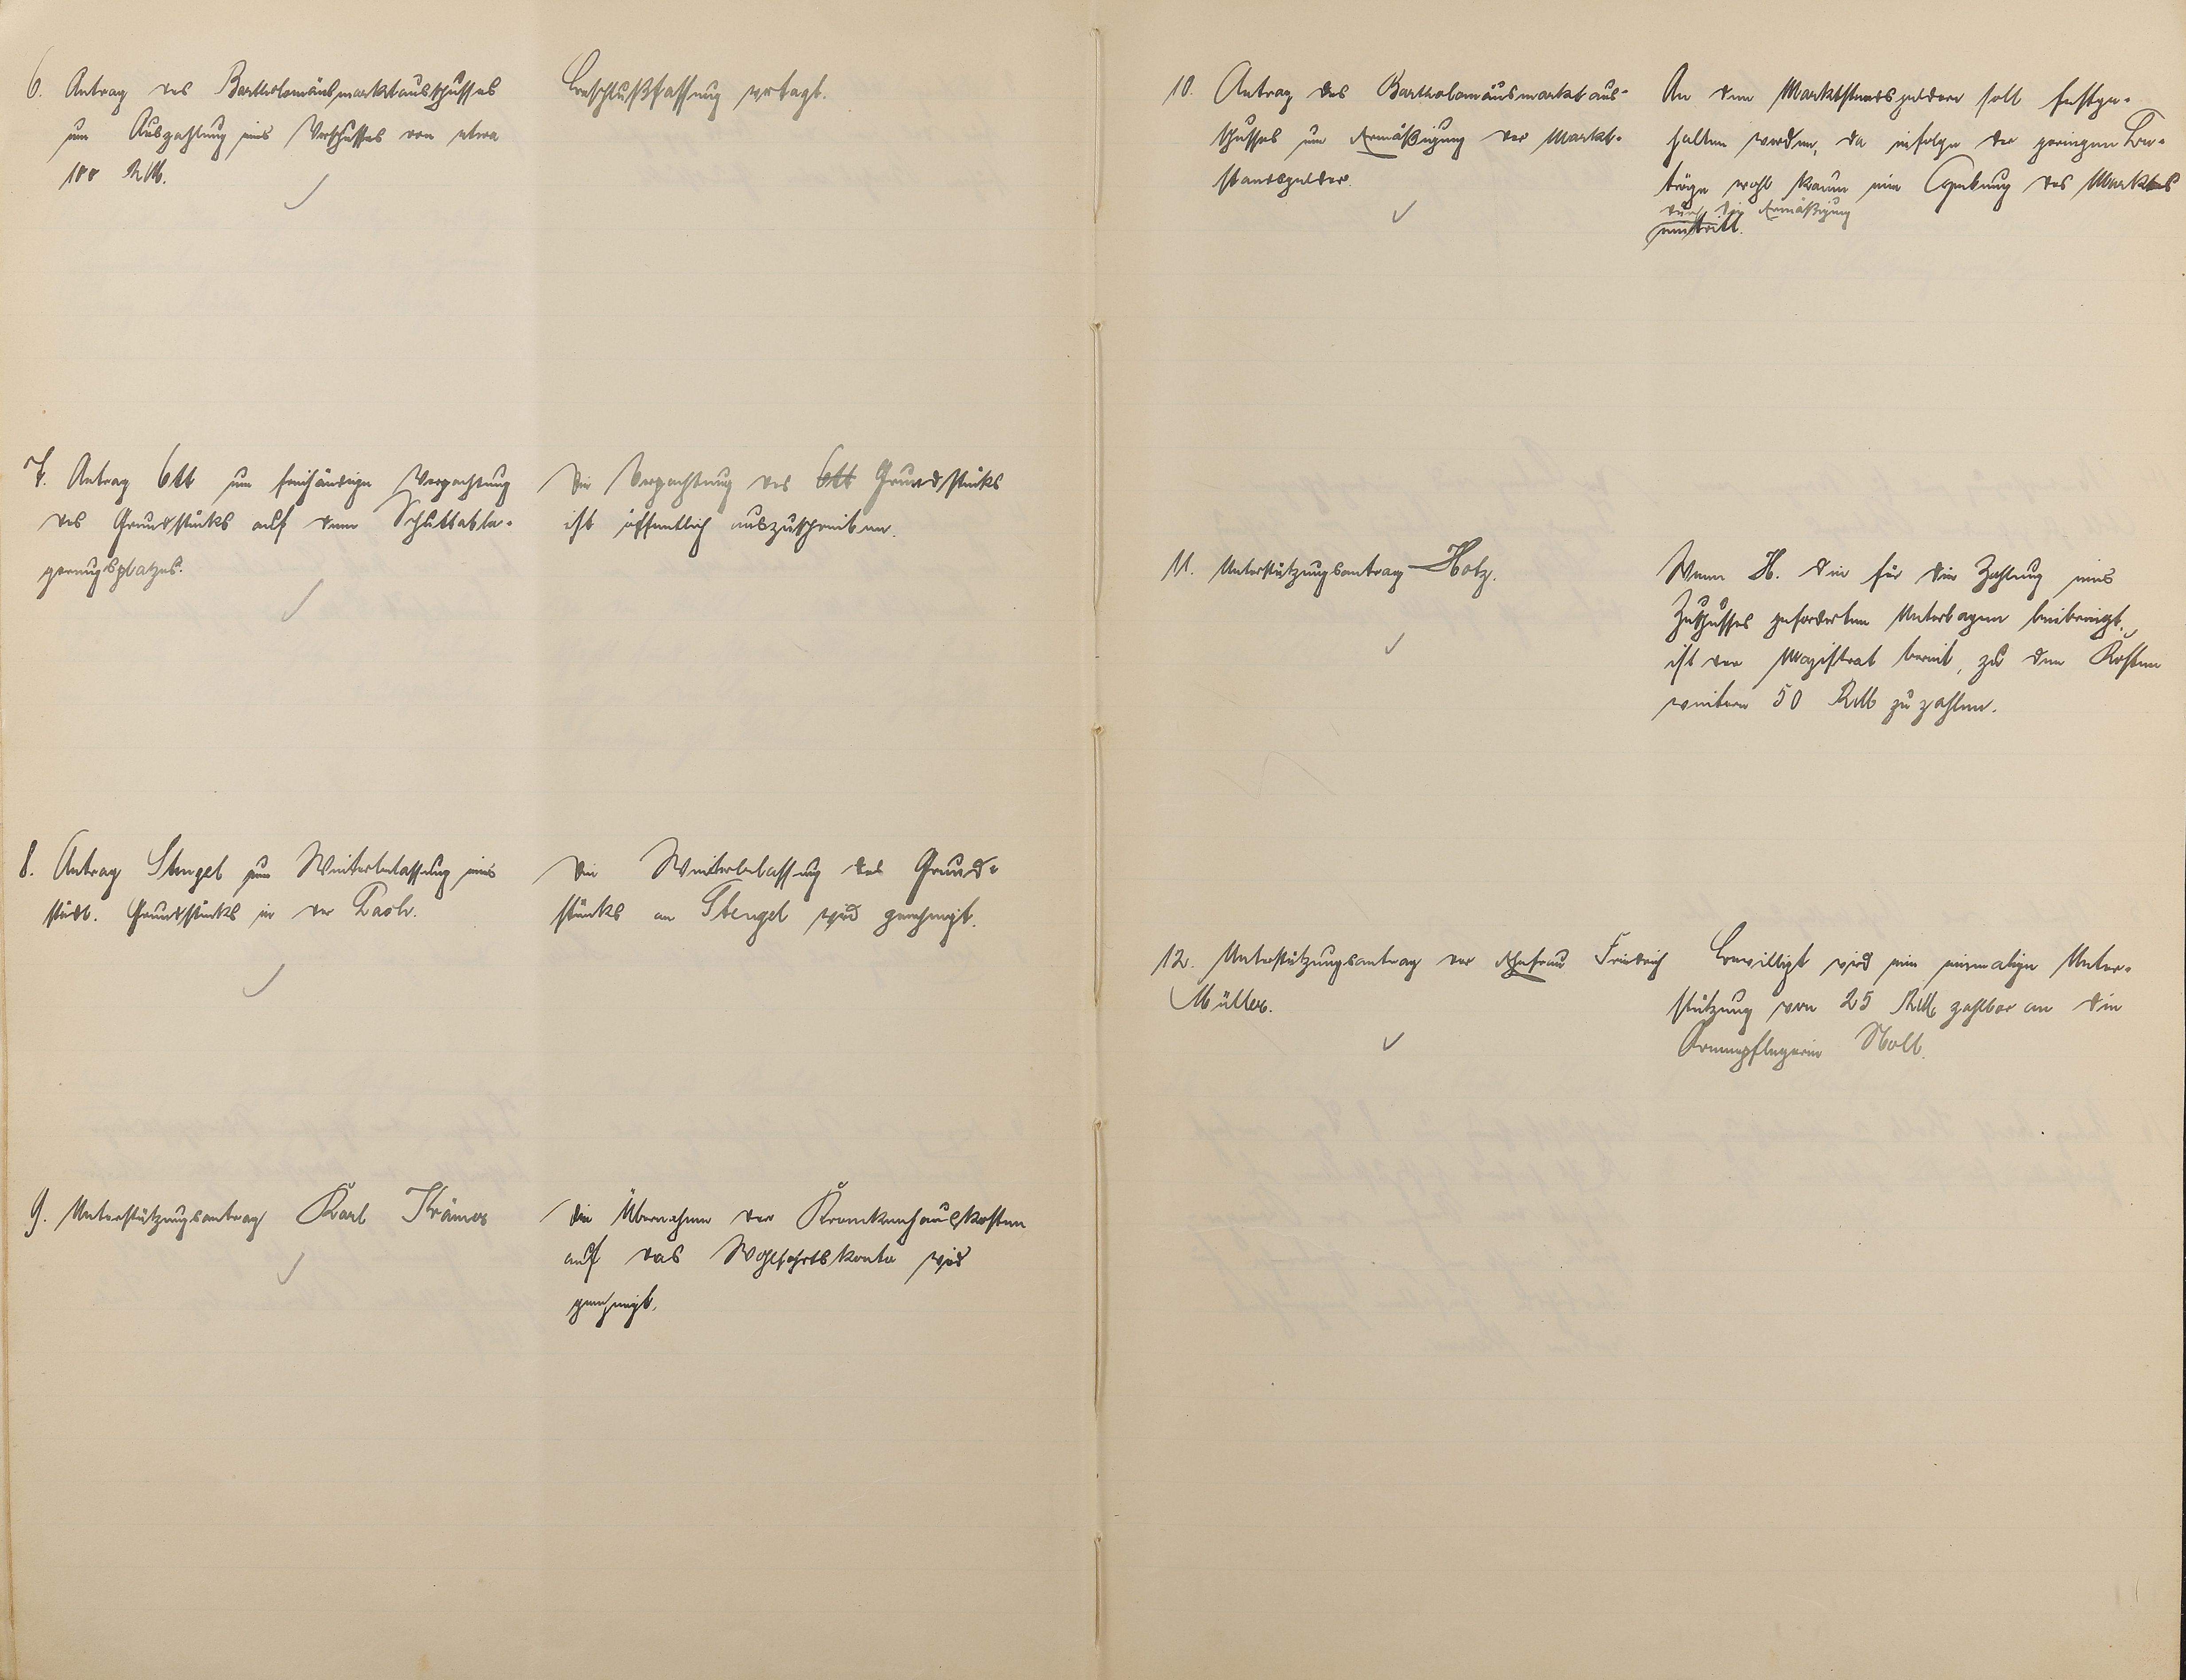 6. Antrag des Bartholomäusmarktausschusses
um Auszahlung eines Vorschusses von etwa
100 RM.
Beschlußfassung vertagt.
7. Antrag Ott um freihändige Verpachtung
des Grundstücks auf dem Schuttabla-
gerungsplatzes.
Die Verpachtung des Ott Grundstücks
ist öffentlich auszuschreiben.
8. Antrag Stengel um Weiterbelassung eines
städt. Grundstücks in der
Die Weiterbelassung des Grund-
stücks an Stengel wird genehmigt.
9. Unterstützungsantrag Karl Krämer
Die Übernahme der Krankenhauskosten
auf das Wohlfahrtskonto wird
genehmigt.
10. Antrag des Bartholomäusmarktaus-
schusses um Ermäßigung der Markt-
standsgelder.
An den Marktstandsgeldern soll festge-
halten werden, da infolge der geringen Be-
träge wohl kaum eine Hebung des Marktes
durch die Ermäßigung
eintritt.
11. Unterstützungsantrag Hotz.
Wenn H. die für die Zahlung eines
Zuschusses geforderten Unterlagen beibringt,
ist der Magistrat bereit, zu den Kosten
weitere 50 RM zu zahlen.
12. Unterstützungsantrag der Ehefrau Friedrich
Müller.
Bewilligt wird eine einmalige Unter-
stützung von 25 RM, zahlbar an die
Armenpflegerin Noll.